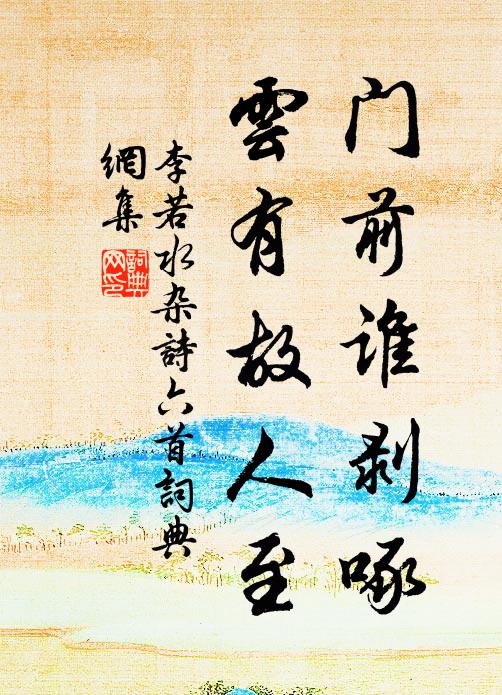 门前谁剥啄
雲有故人至
李若水杂詩六首詞典
網集
詞典網印